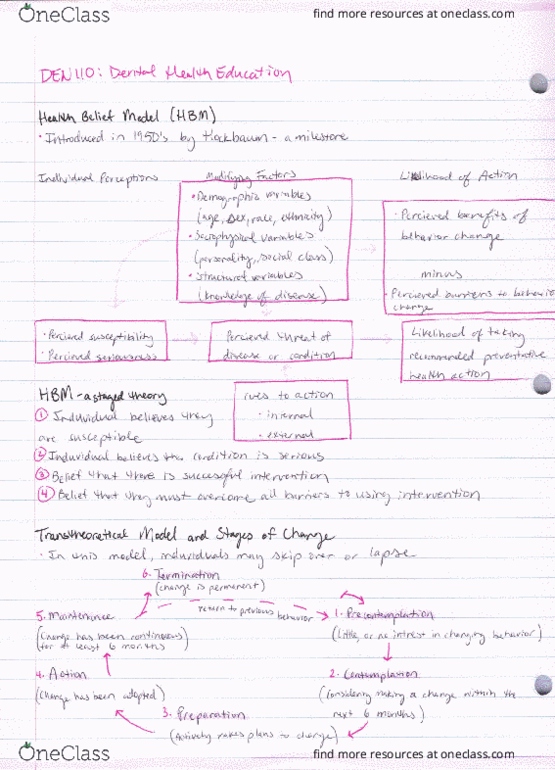 OneClass
find more resources at oneclass.com
DEN110: Dental Health Education
Health Belief Model (HBM)
• Introduced in 1950's by Hockbaum - a milestone
Individual Perceptions
Modifying Factors
Likelihood of Action
• Demographic variables
(age, sex, race, ethnicity)
• Sociophysical variables
(personality, social class)
• Structural variables
(knowledge of disease)
• Percieved benefits of
behavior change
minus
• Percieved burriers to behavior
change
• Percieved susceptibility
• Percieved seriousness
Percieved threat of
disease or condition
Likelihood of taking
recommended preventative
health action
HBM - a staged theory
① Individual believes they
are susceptible
② Individual believes the condition is serious
③ Belief that there is successful intervention
④ Belief that they must overcome all barriers to using intervention
cues to action
• internal
• external
Transtheoretical Model and Stages of Change
• In this model, individuals may skip over or lapse
6. Termination
(change is permanent)
return to previous behavior
1. Precontemplation
(Little, or no intrest in changing behavior)
2. Contemplation
(Considering making a change within the
next 6 months)
3. Preparation
(Actively makes plans to change)
4. Action
(Change has been adopted)
5. Maintenance
(Change has been continuous
for at least 6 months)
OneClass
find more resources at oneclass.com